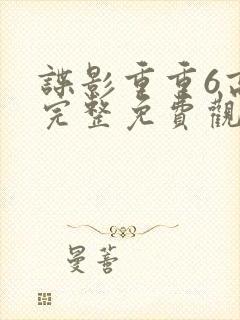 諜影重重6高
完整免費觀
曼薈